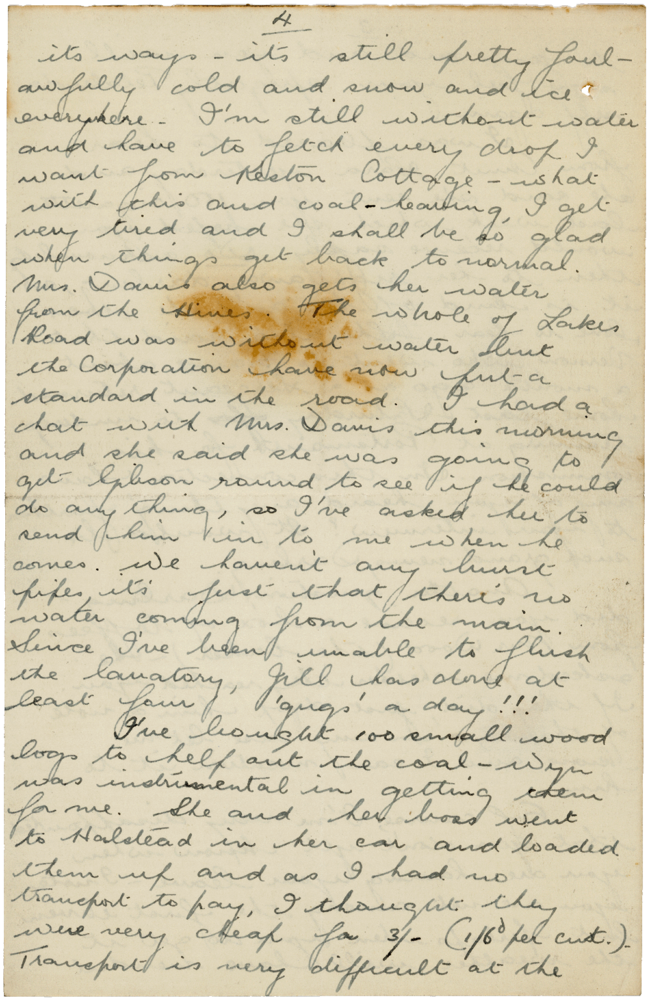 4
its ways - it's still pretty foul -
awfully cold and snow and ice
everywhere - I'm still without water
and have to fetch every drop I
want from Keston Cottage - what
with this and coal-heaving, I get
very tired and I shall be so glad
when things get back to normal.
Mrs. Davis also gets her water
from the Hines. The whole of Lakes
Road was without water but
the Corporation have now put a
standard in the road. I had a
chat with Mrs. Davis this morning
and she said she was going to
get Gibson round to see if he could
do anything, so I've asked her to
send him in to me when he
comes. We haven't any burst
pipes, it's just that there's no
water coming from the main.
Since I've been unable to flush
the lavatory, Jill has done at
least four 'gugs' a day!!!
I've bought 100 small wood
logs to help out the coal - Wyn
was instrumental in getting them
for me. She and her boss went
to Halstead in her car and loaded
them up and as I had no
transport to pay, I thought they
were very cheap for 3/- (1/6d per cwt.).
Transport is very difficult at the